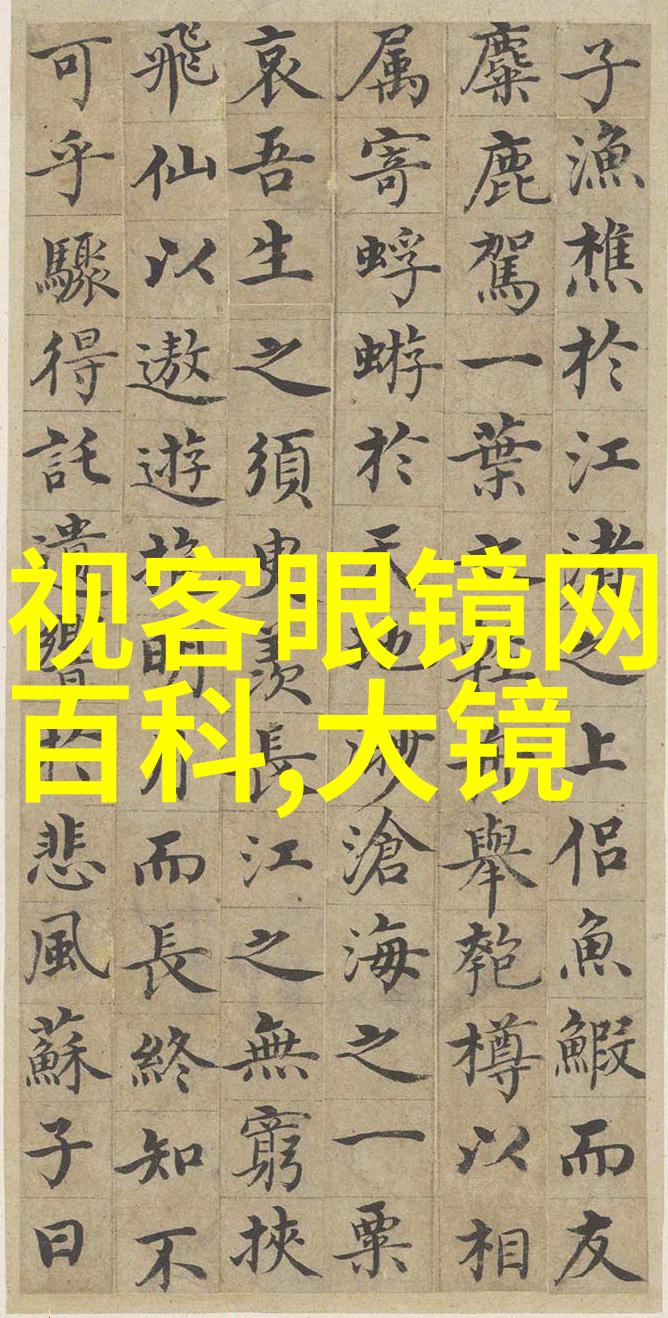 子漁樵於江渚之上侶魚鰕而友
麋鹿駕一葉之輕舟舉匏樽以相
属寄蜉蝣於天地渺滄海之一粟
哀吾生之須臾羨長江之無窮挾
飛仙以遨遊抱明月而長終知不
可乎驟得託遺響於悲風蘇子曰
视客眼镜网
百科,大镜